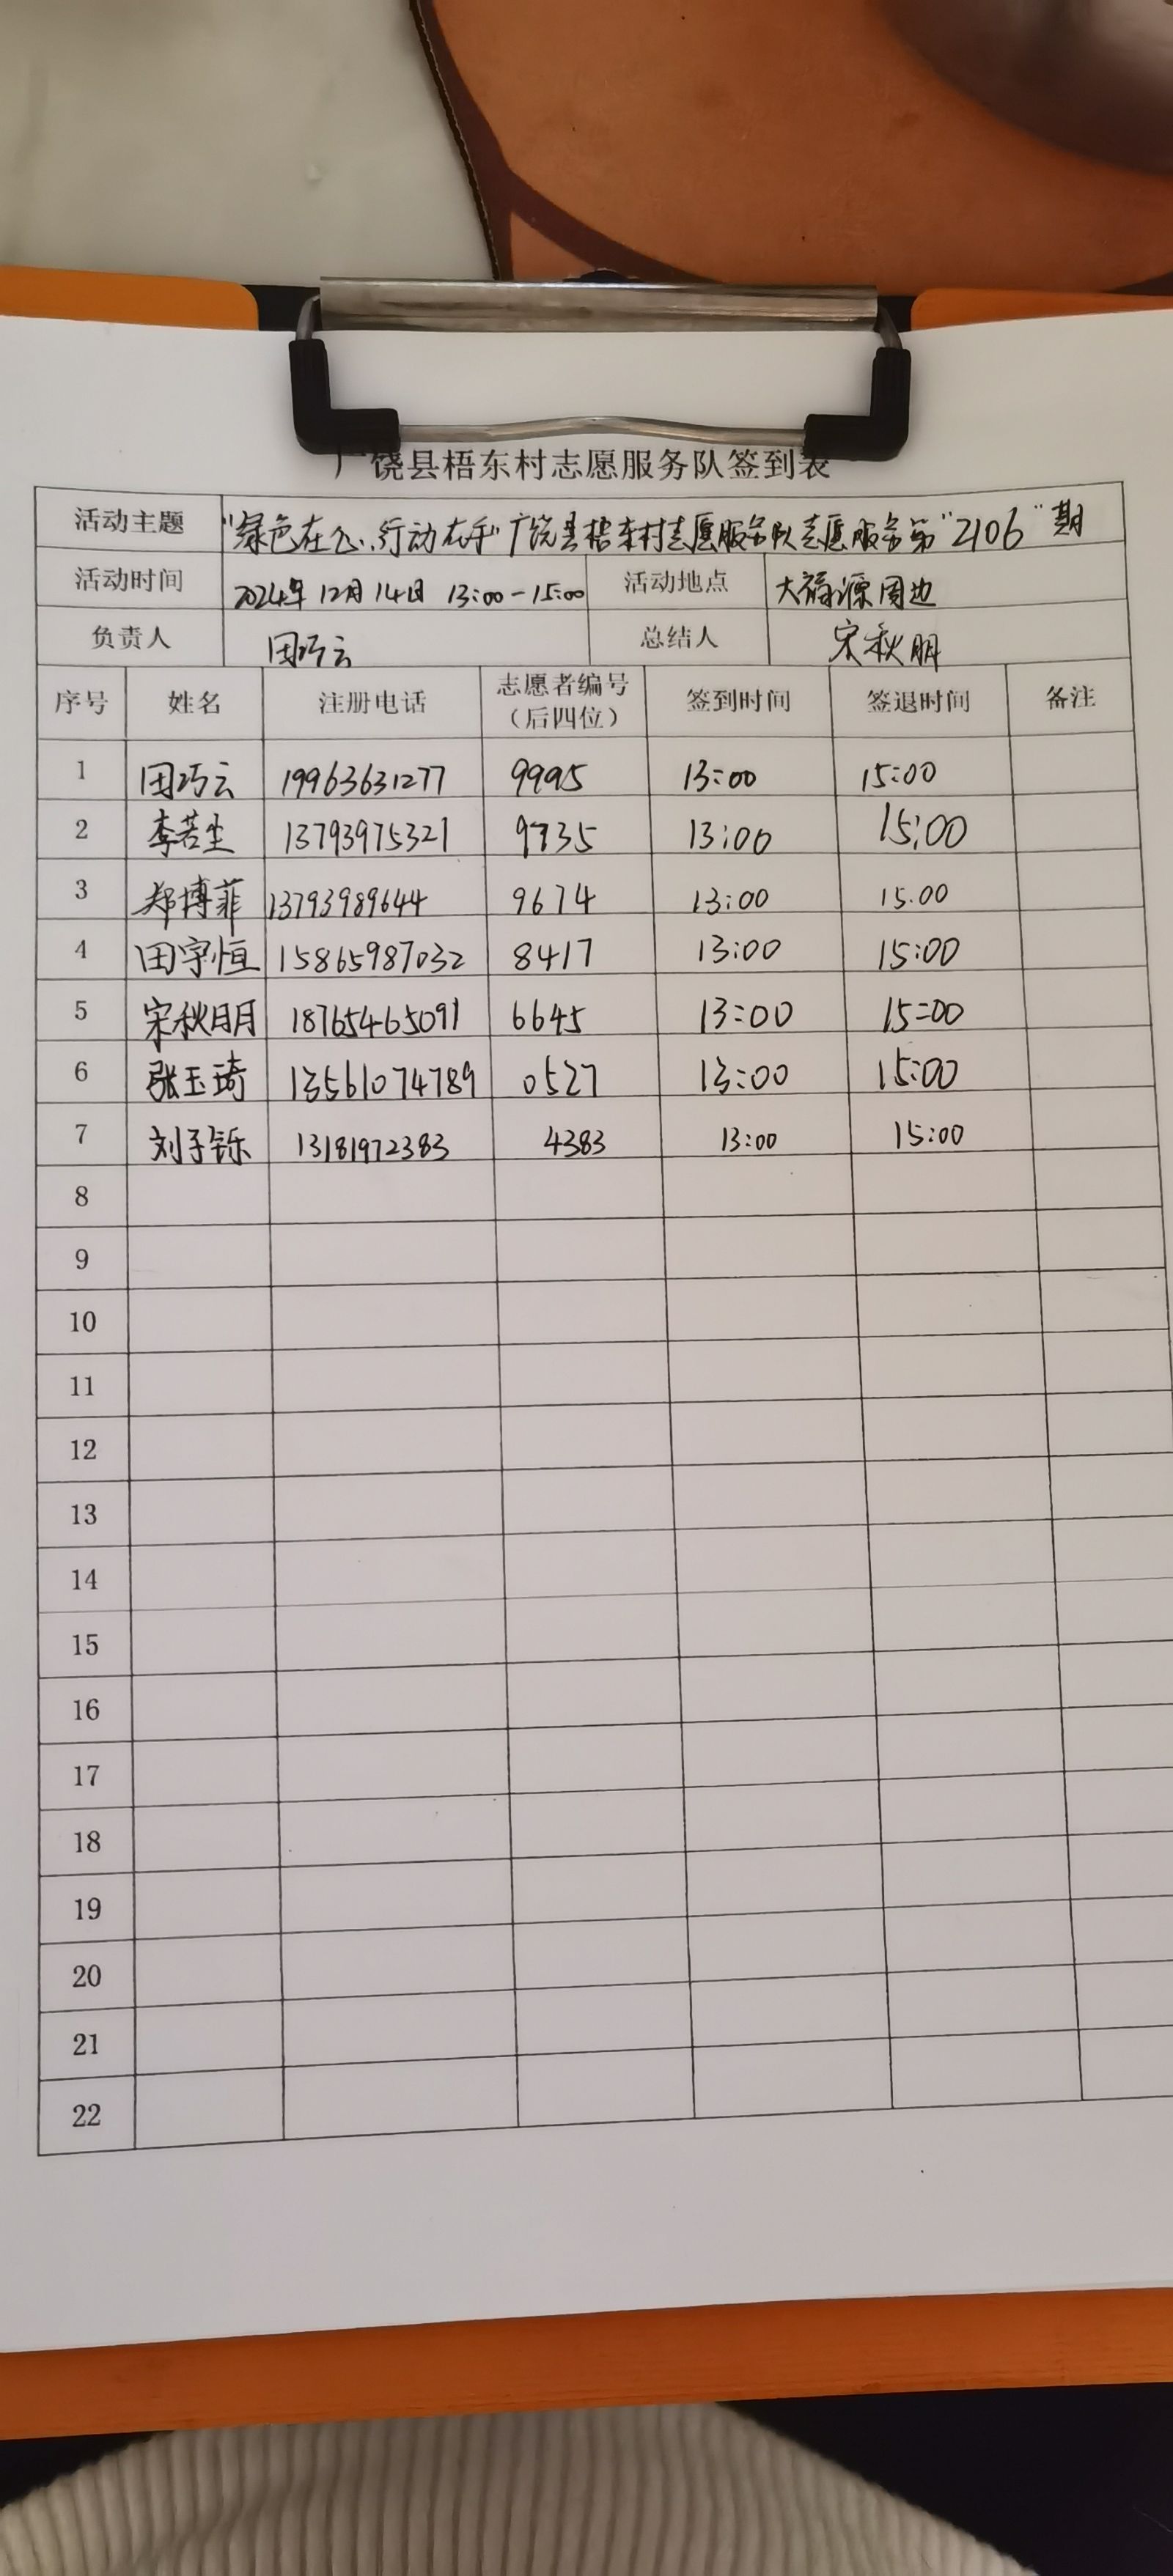 广饶县梧东村志愿服务队签到表
活动主题 "绿色在心,行动在手"广饶县梧东村志愿服务队志愿服务第"2106"期
活动时间 2024年12月14日 13:00-15:00 活动地点 大福源周边
负责人 田巧云 总结人 宋秋明
序号 姓名 注册电话 志愿者编号(后四位) 签到时间 签退时间 备注
1 田巧云 19963631277 9995 13:00 15:00
2 李若尘 13793975321 9735 13:00 15:00
3 郑博菲 13793989644 9674 13:00 15.00
4 田宇恒 15865987032 8417 13:00 15:00
5 宋秋明 18765465091 6645 13:00 15:00
6 张玉琦 13561074789 0527 13:00 15:00
7 刘子铄 13181972383 4383 13:00 15:00
8
9
10
11
12
13
14
15
16
17
18
19
20
21
22